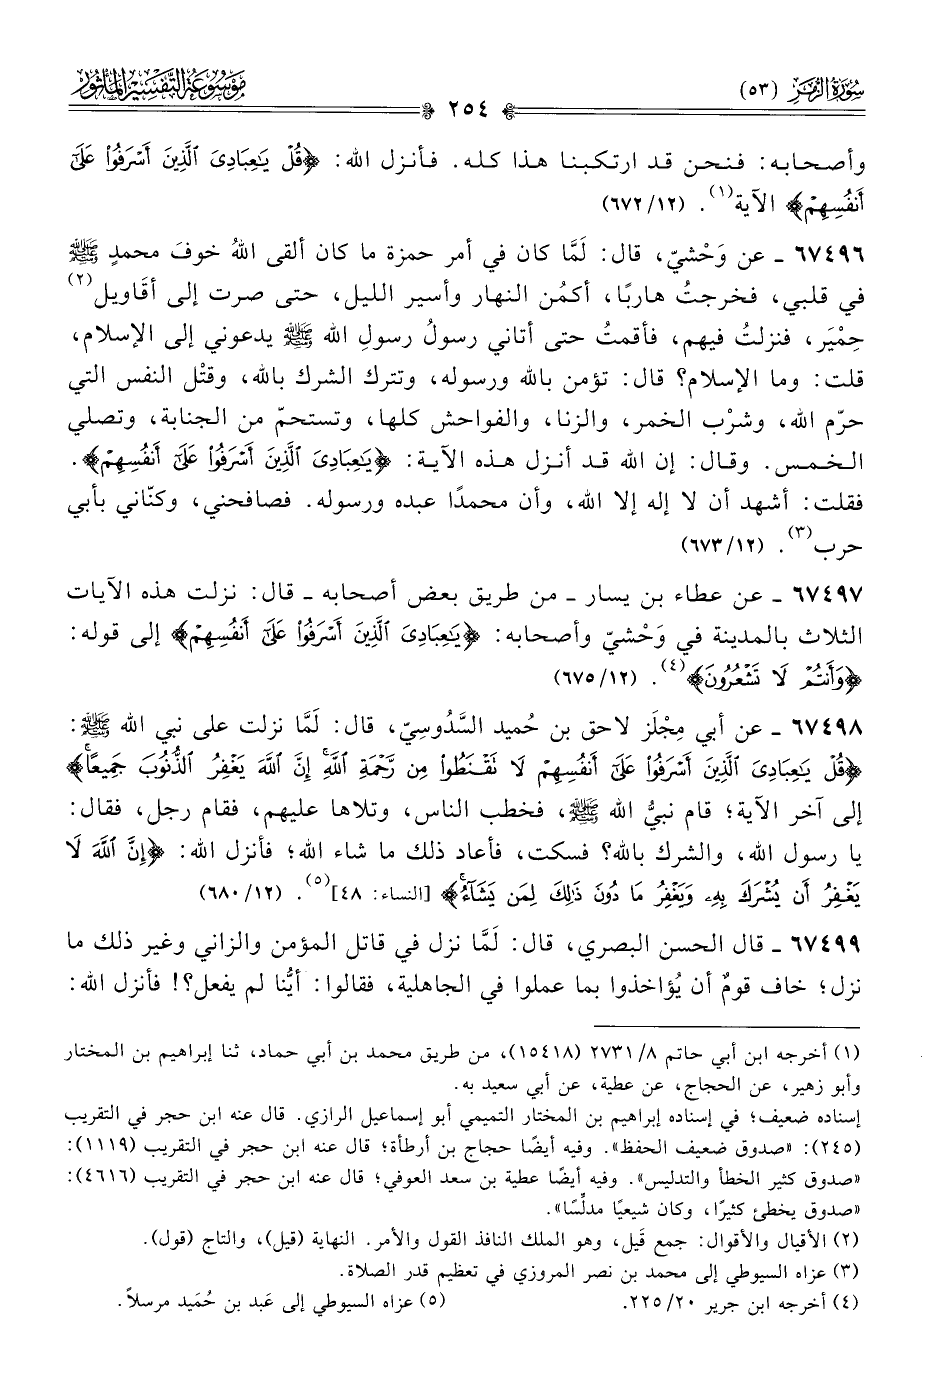 سُورَةُ الزُّمَرِ (٥٣)
٢٥٤
مَوْسُوعَةُ التَّفْسِيرِ المَأْثُور
وأصحابه: فنحن قد ارتكبنا هذا كله. فأنزل الله: ﴿قُلْ يَٰعِبَادِىَ ٱلَّذِينَ أَسْرَفُوا۟ عَلَىٰٓ
أَنفُسِهِمْ﴾ الآية(١). (٦٧٢/١٢)
٦٧٤٩٦ ـ عن وَحْشيّ، قال: لَمَّا كان في أمر حمزة ما كان ألقى اللهُ خوفَ محمدٍ ﷺ
في قلبي، فخرجتُ هاربًا، أكمُن النهار وأسير الليل، حتى صرت إلى أقَاويل(٢)
حِمْيَر، فنزلتُ فيهم، فأقمتُ حتى أتاني رسولُ رسولِ الله ﷺ يدعوني إلى الإسلام،
قلت: وما الإسلام؟ قال: تؤمن بالله ورسوله، وتترك الشرك بالله، وقتْل النفس التي
حرّم الله، وشرْب الخمر، والزنا، والفواحش كلها، وتستحمّ من الجنابة، وتصلي
الخمس. وقال: إن الله قد أنزل هذه الآية: ﴿يَٰعِبَادِىَ ٱلَّذِينَ أَسْرَفُوا۟ عَلَىٰٓ أَنفُسِهِمْ﴾.
فقلت: أشهد أن لا إله إلا الله، وأن محمدًا عبده ورسوله. فصافحني، وكنّاني بأبي
حرب(٣). (٦٧٣/١٢)
٦٧٤٩٧ ـ عن عطاء بن يسار ـ من طريق بعض أصحابه ـ قال: نزلت هذه الآيات
الثلاث بالمدينة في وَحْشيّ وأصحابه: ﴿يَٰعِبَادِىَ ٱلَّذِينَ أَسْرَفُوا۟ عَلَىٰٓ أَنفُسِهِمْ﴾ إلى قوله:
﴿وَأَنتُمْ لَا تَشْعُرُونَ﴾(٤). (٦٧٥/١٢)
٦٧٤٩٨ ـ عن أبي مِجْلَز لاحق بن حُميد السَّدُوسِيّ، قال: لَمَّا نزلت على نبي الله ﷺ:
﴿قُلْ يَٰعِبَادِىَ ٱلَّذِينَ أَسْرَفُوا۟ عَلَىٰٓ أَنفُسِهِمْ لَا تَقْنَطُوا۟ مِن رَّحْمَةِ ٱللَّهِ ۚ إِنَّ ٱللَّهَ يَغْفِرُ ٱلذُّنُوبَ جَمِيعًا ۚ﴾
إلى آخر الآية؛ قام نبيُّ الله ﷺ، فخطب الناس، وتلاها عليهم، فقام رجل، فقال:
يا رسول الله، والشرك بالله؟ فسكت، فأعاد ذلك ما شاء الله؛ فأنزل الله: ﴿إِنَّ ٱللَّهَ لَا
يَغْفِرُ أَن يُشْرَكَ بِهِۦ وَيَغْفِرُ مَا دُونَ ذَٰلِكَ لِمَن يَشَآءُ ۚ﴾ [النساء: ٤٨](٥). (٦٨٠/١٢)
٦٧٤٩٩ ـ قال الحسن البصري، قال: لَمَّا نزل في قاتل المؤمن والزاني وغير ذلك ما
نزل؛ خاف قومٌ أن يُؤاخذوا بما عملوا في الجاهلية، فقالوا: أيُّنا لم يفعل؟! فأنزل الله:
(١) أخرجه ابن أبي حاتم ٨/ ٢٧٣١ (١٥٤١٨)، من طريق محمد بن أبي حماد، ثنا إبراهيم بن المختار
وأبو زهير، عن الحجاج، عن عطية، عن أبي سعيد به.
إسناده ضعيف؛ في إسناده إبراهيم بن المختار التميمي أبو إسماعيل الرازي. قال عنه ابن حجر في التقريب
(٢٤٥): «صدوق ضعيف الحفظ». وفيه أيضًا حجاج بن أرطأة؛ قال عنه ابن حجر في التقريب (١١١٩):
«صدوق كثير الخطأ والتدليس». وفيه أيضًا عطية بن سعد العوفي؛ قال عنه ابن حجر في التقريب (٤٦١٦):
«صدوق يخطئ كثيرًا، وكان شيعيًا مدلِّسًا».
(٢) الأقيال والأقوال: جمع قَيل، وهو الملك النافذ القول والأمر. النهاية (قيل)، والتاج (قول).
(٣) عزاه السيوطي إلى محمد بن نصر المروزي في تعظيم قدر الصلاة.
(٤) أخرجه ابن جرير ٢٠/ ٢٢٥. (٥) عزاه السيوطي إلى عَبد بن حُمَيد مرسلاً.